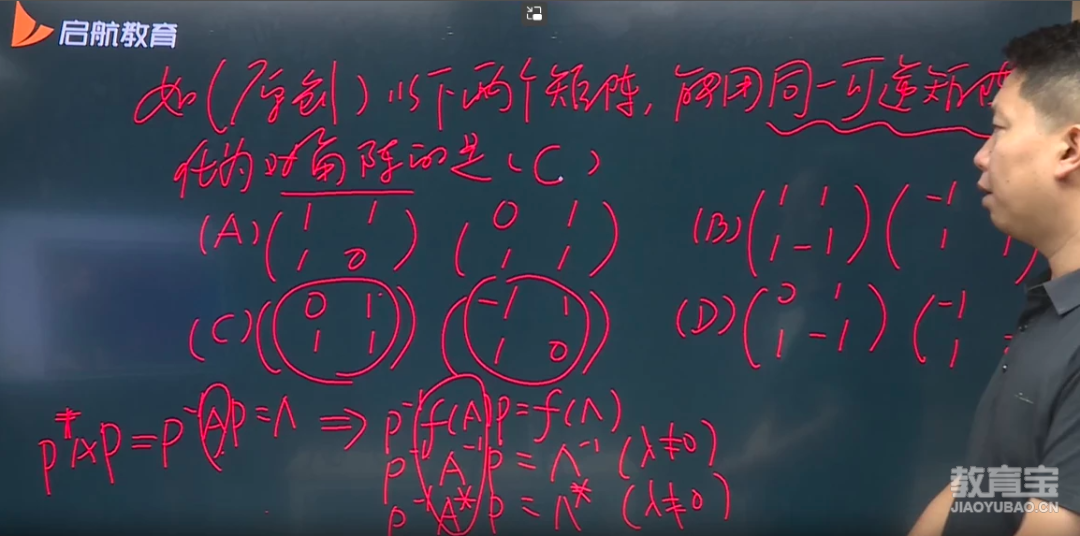 启航教育
如(原创)以下两个矩阵,能用同一可逆矩阵
化为对角阵的是(C)
(A) (1 1; 1 0) (0 1; 1 1) (B) (1 1; 1 -1) (-1 1; 1
(C) (0 1; 1 1) (-1 1; 1 0) (D) (0 1; 1 -1) (-1 1; 1
P*AP = P⁻AP = Λ ⇒ P⁻f(A)P = f(Λ)
P⁻A⁻¹P = Λ⁻¹ (λ≠0)
P⁻A*P = Λ* (λ≠0)
教育宝
JIAOYUBAO.CN